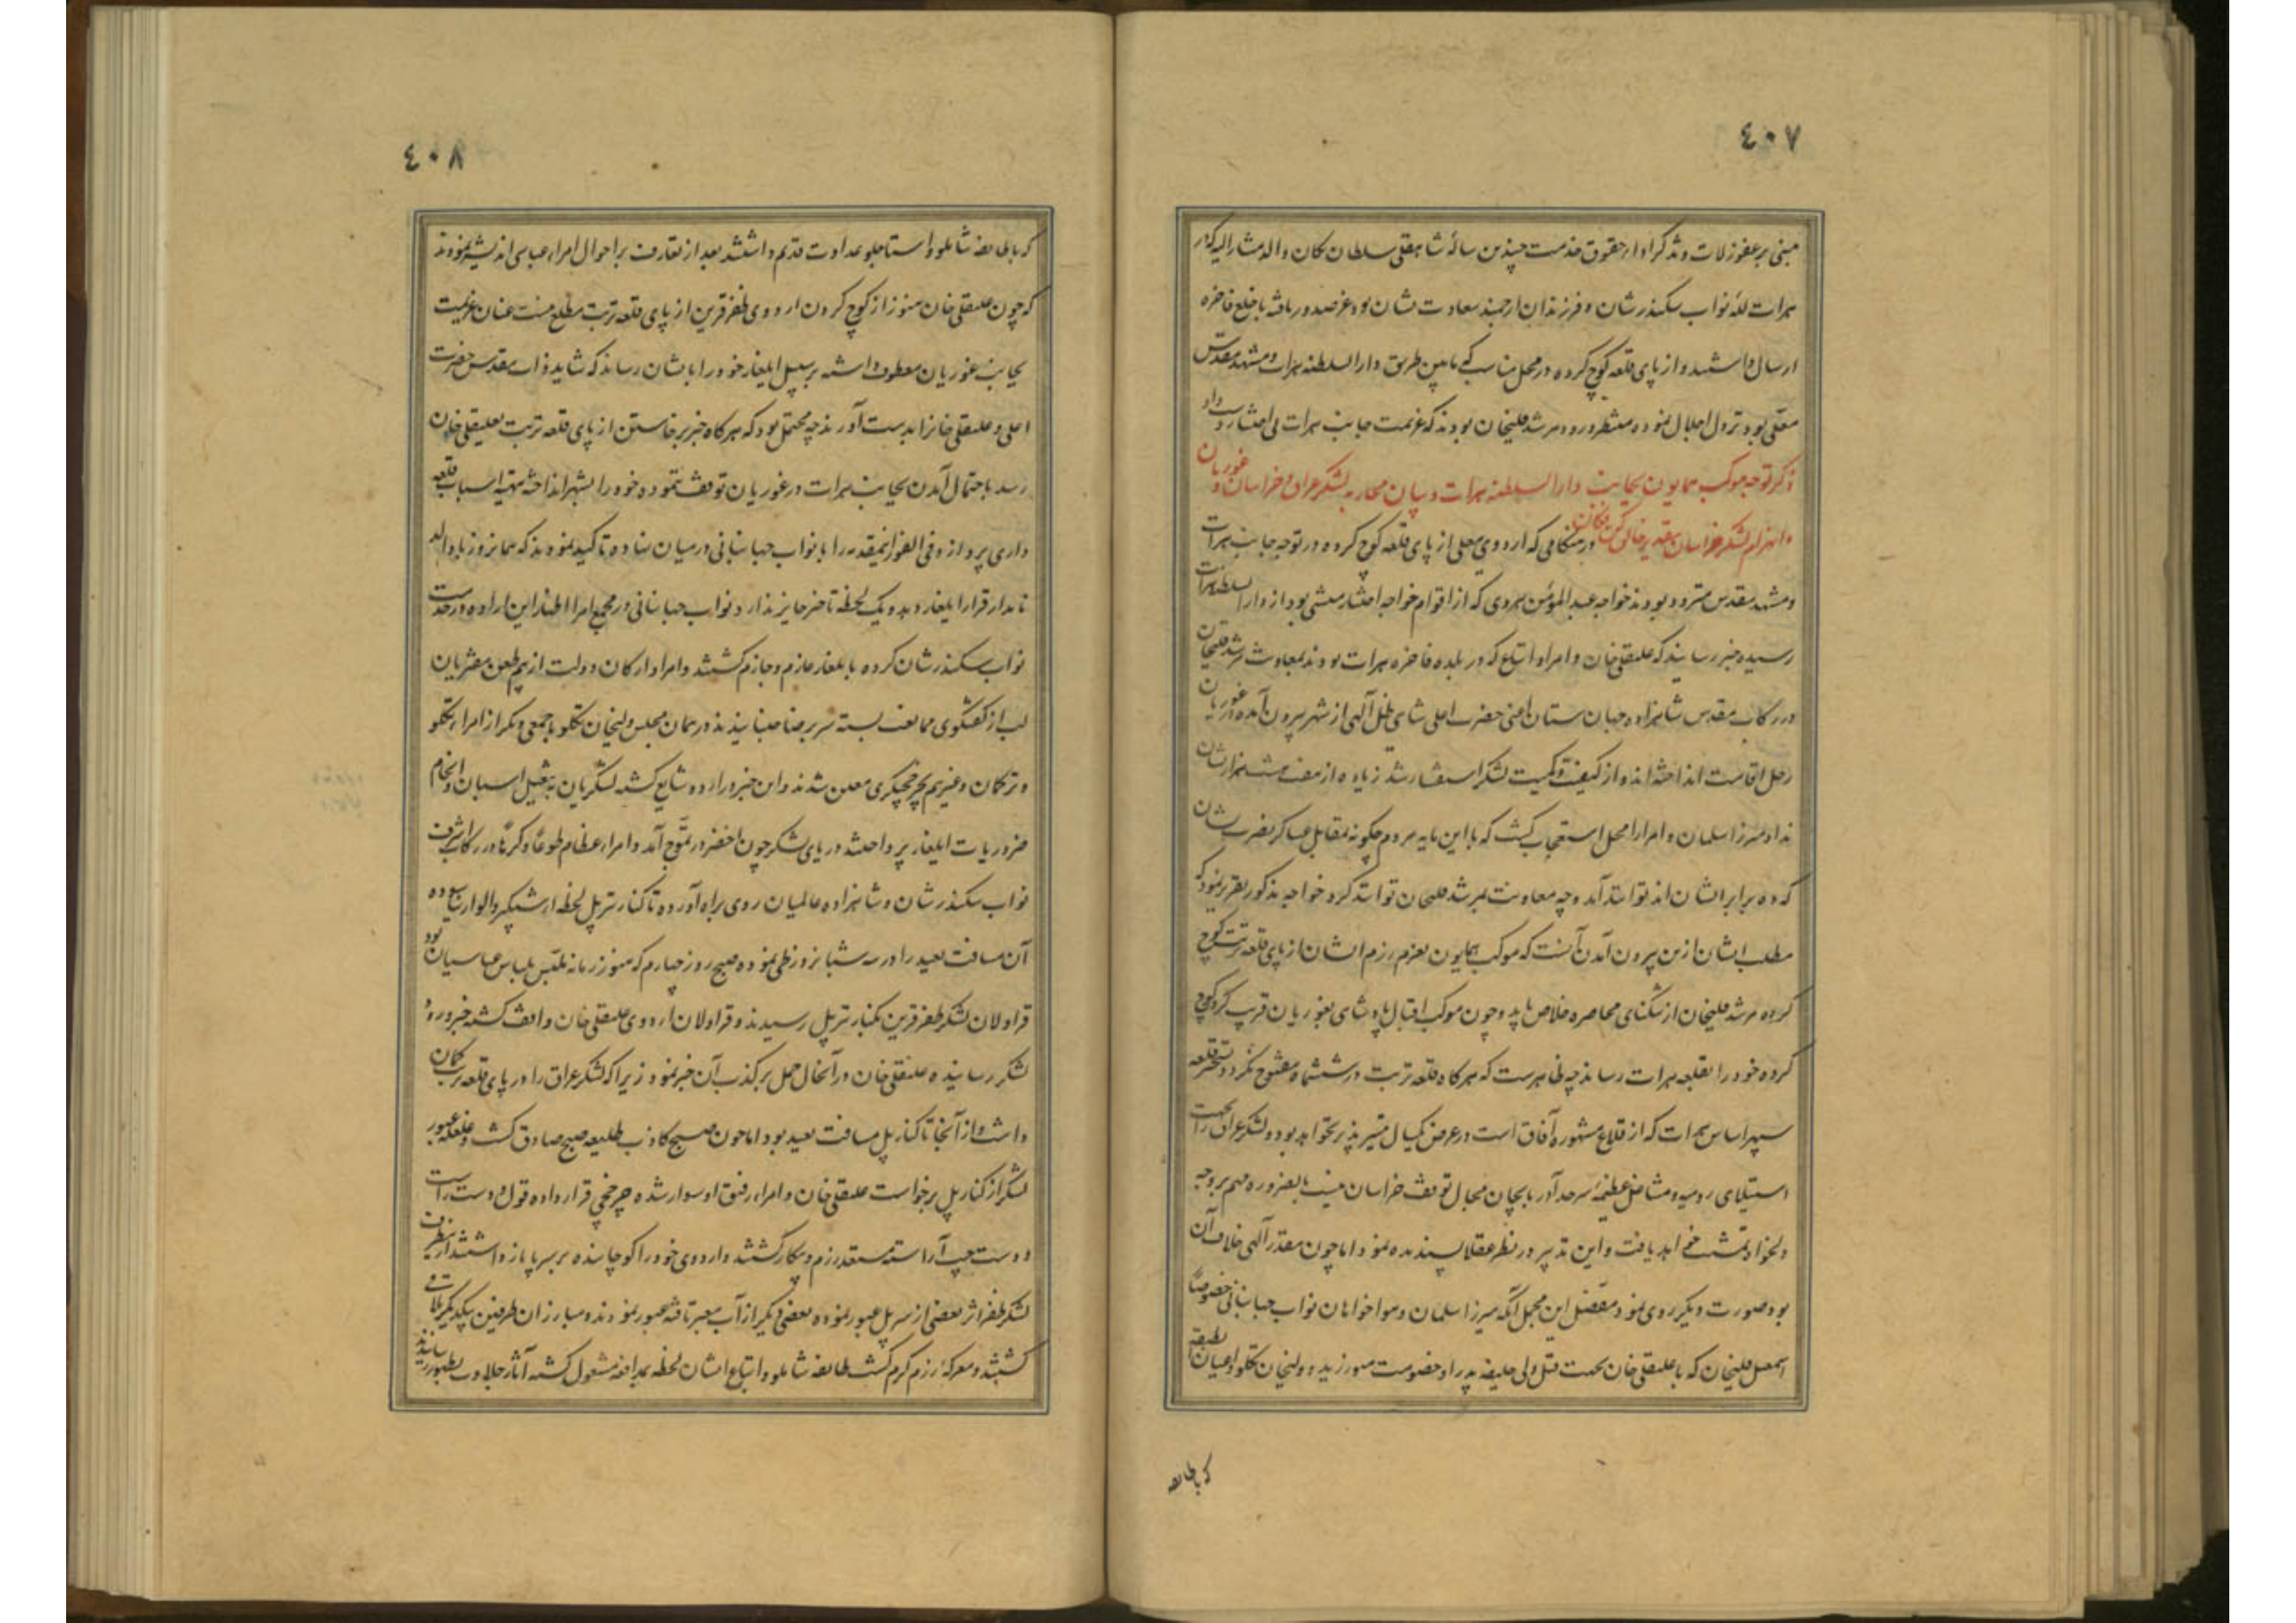 ٤٠٧
مبنی بر عفو زلات و تذکر ادای حقوق خدمت چندین سالهٔ شاهقلی سلطان یکان والد مشارالیه که در
هرات للهٔ نواب سکندرشان و فرزندان ارجمند سعادت نشان بود عز صدور یافته با خلع فاخره
ارسال داشتند و از پای قلعه کوچ کرده در محل مناسب که مابین طریق دارالسلطنه هرات و مشهد مقدس
معلی بود نزول اجلال نموده منتظر ورود مرشد قلیخان بودند که عزیمت جانب هرات
ذکر توجه موکب همایون بجانب دارالسلطنه هرات و بیان محاربه لشکر عراق و خراسان در غوریان
و انهزام لشکر خراسان بتقدیر خالق کن فکان در هنگامی که اردوی معلی از پای قلعه کوچ کرده در توجه جانب هرات
و مشهد مقدس متردد بودند خواجه عبدالمؤمن هروی که از اقوام خواجه افتخار منشی بود از دارالسلطنه هرات
رسیده خبر رسانید که علیقلی خان و امرا و اتباع که در بلده فاخره هرات بودند بمعاونت مرشد قلیخان
در رکاب مقدس شاهزاده جهان ستان اعنی حضرت اعلی شاهی ظل آلهی از شهر بیرون آمده در غوریان
رحل اقامت انداخته اند و از کیفیت و کمیت لشکر استفسار شد زیاده از هفت هشت هزار نشان
نداد میرزا سلمان و امرا را محل استعجاب گشت که با این مایه مردم چگونه بمقابل عساکر نصرت نشان
که ده برابر ایشان اند توانند آمد و چه معاونت بمرشد قلیخان توانند کرد خواجه مذکور تقریر نمود که
مطلب ایشان ازین بیرون آمدن آنست که موکب همایون بعزم رزم ایشان از پای قلعه تربت کوچ
کرده مرشد قلیخان از تنگنای محاصره خلاص یابد و چون موکب اقبال پادشاهی بغوریان قریب گردد کوچ
کرده خود را بقلعه هرات رسانند چه ظاهرست که هرگاه قلعه تربت در ششماه مفتوح نگردد تسخیر قلعه
سپهر اساس هرات که از قلاع مشهوره آفاق است در عرض یکسال متیسر پذیر نخواهد بود و لشکر عراق را بجهت
استیلای رومیه و مشاغل عظیمه سرحد آذربایجان مجال توقف خراسان نیست بالضروره مهم بر وجه
دلخواه تمشیت خواهد یافت و این تدبیر در نظر عقلا پسندیده نمود اما چون مقدر آلهی خلاف آن
بود صورت دیگر روی نمود مفصل این مجمل آنکه میرزا سلمان و هواخواهان نواب جهانبانی خصوصاً
اسمعیل قلیخان که با علیقلی خان بجهت قتل ولی خلیفه پدر او خصومت میورزید و ولیخان تکلو و اعیان طبقه
که با طایفه
٤٠٨
که با طایفه شاملو و استاجلو عداوت قدیم داشتند بعد از تعارف بر احوال امراء عباسی اندیشه نمودند
که چون علیقلی خان هنوز از کوچ کردن اردوی ظفر قرین از پای قلعه تربت مطلع نیست عنان عزیمت
بجانب غوریان معطوف داشته بر سبیل ایلغار خود را بایشان رسانند که شاید ذات مقدس حضرت
اعلی و علیقلی خانرا بدست آورند چه محتمل بود که هرگاه خبر برخاستن از پای قلعه تربت بعلیقلی خان
رسد باحتمال آمدن بجانب هرات در غوریان توقف ننموده خود را بشهر انداخته بتهیه اسباب قلعه
داری پردازد فی الفور اینمقدمه را با نواب جهانبانی در میان نهاده تاکید نمودند که همانروز با والد
نامدار قرار ایلغار دهد و یک لحظه تاخیر جایز ندارد نواب جهانبانی در مجمع امرا اظهار این اراده در خدمت
نواب سکندرشان کرده بایلغار عازم و جازم گشتند و امرا و ارکان دولت از بیم طعن مفتریان
لب از گفتگوی ممانعت بسته سر رضا جنبانیدند در همان مجلس ولیخان تکلو با جمعی دیگر از امراء تکلو
و ترکمان و غیرهم بچرخچیگری معین شدند و این خبر در اردو شایع گشته لشگریان به تنعیل اسبان و انجام
ضروریات ایلغار پرداختند دریای لشکر چون اخضر در تموج آمد و امراء عظام طوعاً و کرهاً در رکاب اشرف
نواب سکندرشان و شاهزاده عالمیان روی براه آورده تا کنار تیرپل لحظهٔ از شبگیر و الوار نیاسوده
آن مسافت بعید را در سه شبانروز طی نموده صبح روز چهارم که هنوز زمانه ملتبس بلباس عباسیان بود
قراولان لشکر ظفر قرین بکنار تیرپل رسیدند و قراولان اردوی علیقلی خان واقف گشته خبر ورود
لشکر رسانیده علیقلی خان در آنحال حمل بر کذب آن خبر نمود زیرا که لشکر عراق را در پای قلعه تربت گمان
داشت و از آنجا تا کنار پل مسافت بعید بود اما چون صبح کاذب طلیعه صبح صادق گشت و غلغله عبور
لشکر از کنار پل برخواست علیقلی خان و امراء رفیق او سوار شده چرخچی قرار داده قول و دست راست
و دست چپ آراسته مستعد رزم و پیکار گشتند و اردوی خود را کوچانیده بر سر پا باز داشتند از ینطرف
لشکر ظفر اثر بعضی از سر پل عبور نموده بعضی دیگر از آب معبر یافته عبور نمودند و مبارزان طرفین بیکدیگر ملاقی
گشتند و معرکهٔ رزم گرم گشت طایفه شاملو و اتباع ایشان لحظه بمدافعه مشغول گشته آثار جلادت بظهور رسانیدند